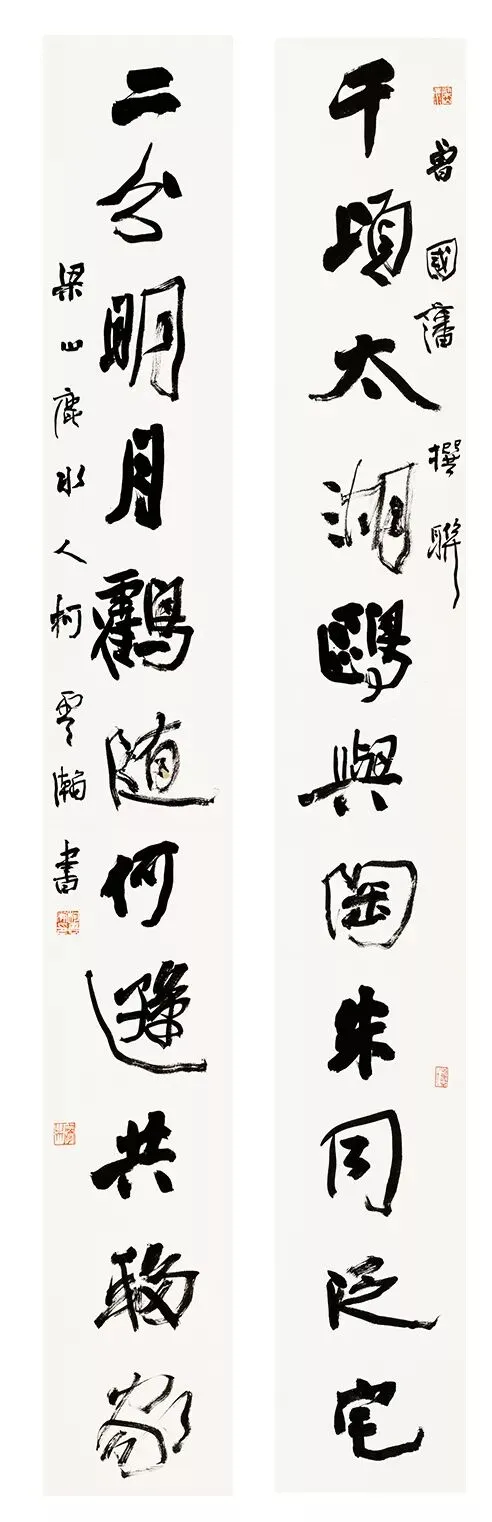 曾國藩撰聯
千頃太湖鷗與陶朱同泛宅
二分明月鶴随何遜共移家
梁山鹿水人柯雲瀚書